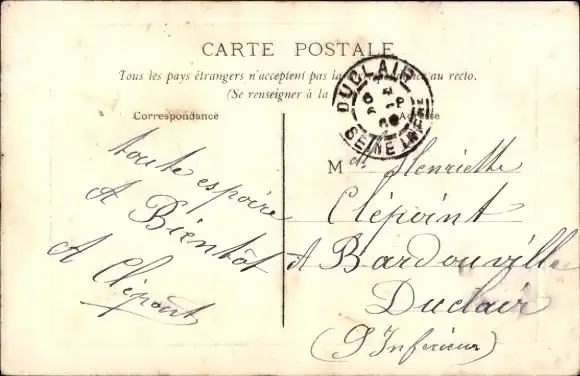 CARTE POSTALE
Tous les pays étrangers n'acceptent pas la correspondance au recto.
(Se renseigner à la
Correspondance
Adresse
DUCLAIR
SEINE INFRE
toute espoire
A Bientôt
A Clépoint
Melle Henriette
Clépoint
A Bardouville
Duclair
(S Inférieur)